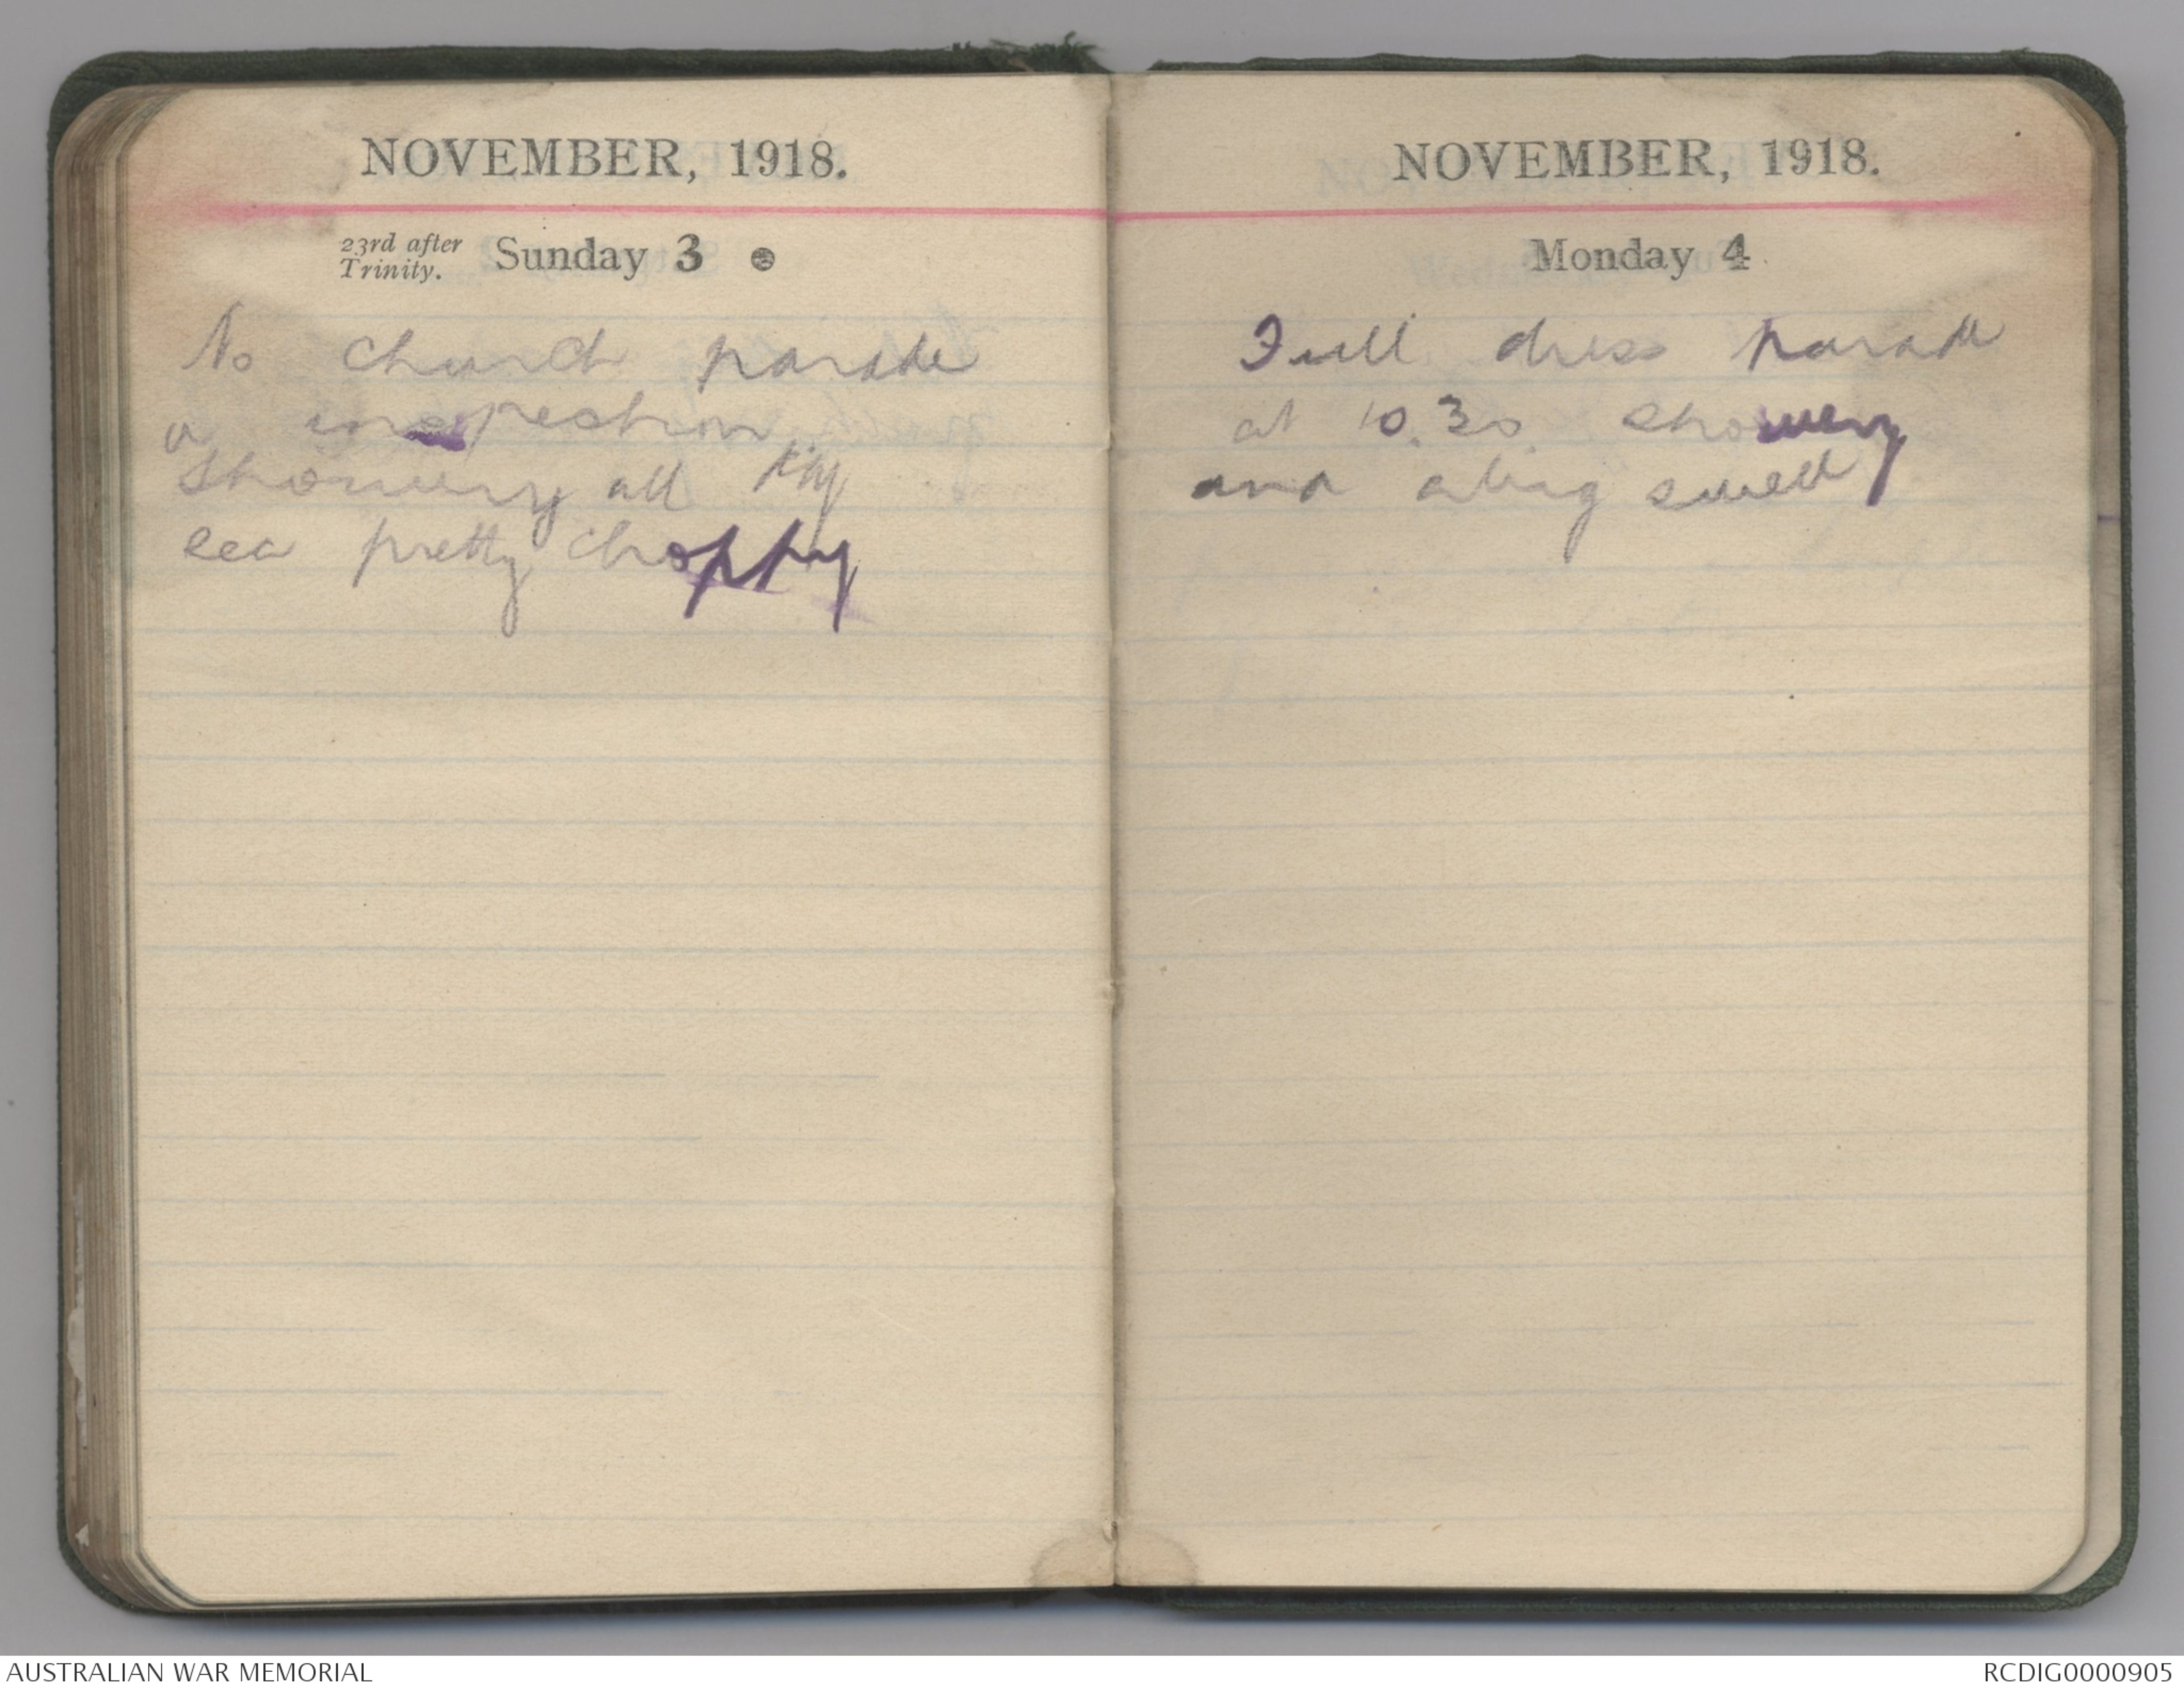 NOVEMBER, 1918.
23rd after
Trinity. Sunday 3
No church parade
or inspection
showery all day
sea pretty choppy
NOVEMBER, 1918.
Monday 4
Full dress parade
at 10.30 showery
and a big swell
AUSTRALIAN WAR MEMORIAL
RCDIG0000905